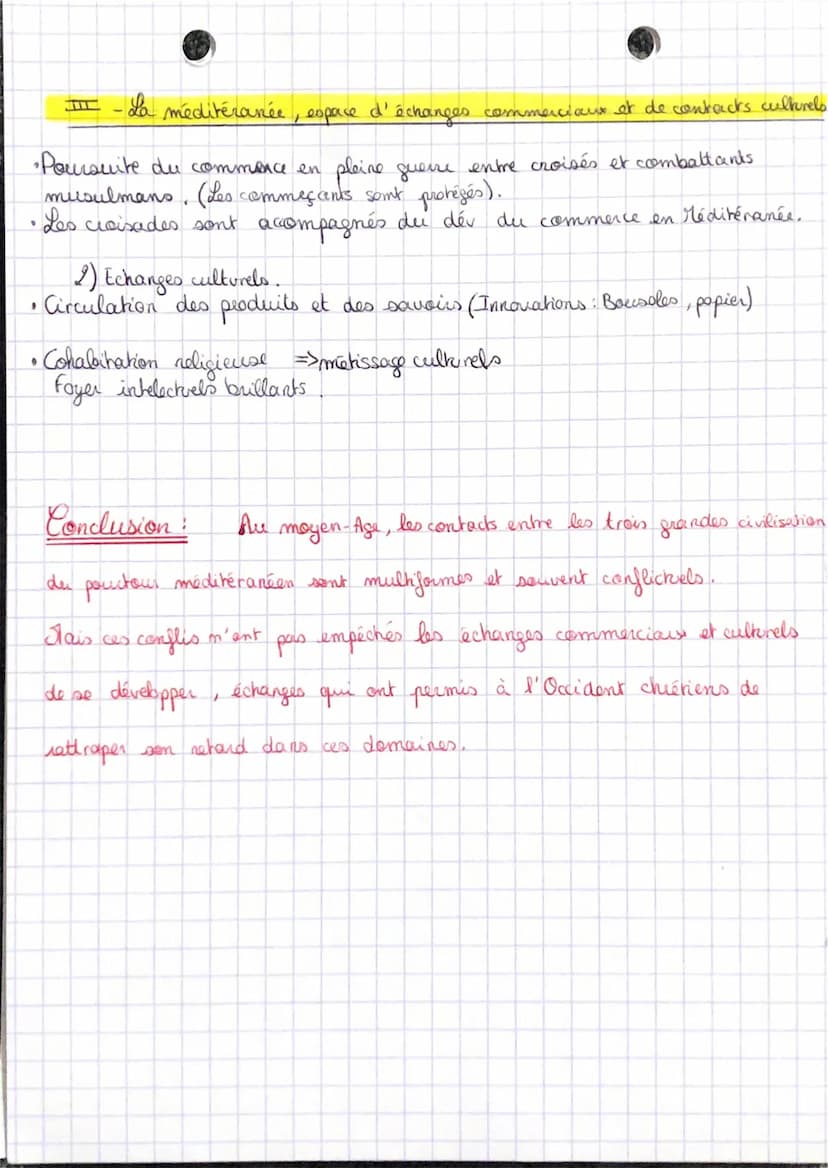 III - La méditéranée, espace d'échanges commerciaux et de contacts culturels
• Poursuite du commerce en pleine guerre entre croisés et combattants
musulmans. (Les commeçants sont protégés).
• Les croisades sont accompagnés du dév du commerce en Méditéranée.
2) Echanges culturels.
• Circulation des produits et des savoirs (Innovations : Boussoles, papier)
• Cohabitation religieuse => métissage culturels
Foyer intelectuels brillants.
Conclusion : Au moyen-Age, les contacts entre les trois grandes civilisation
du pourtour méditéranéen sont multiformes et souvent conflictuels.
Mais ces conflis n'ont pas empéchés les échanges commerciaux et culturels
de se développer, échanges qui ont permis à l'Occident chrétiens de
rattraper son retard dans ces domaines.